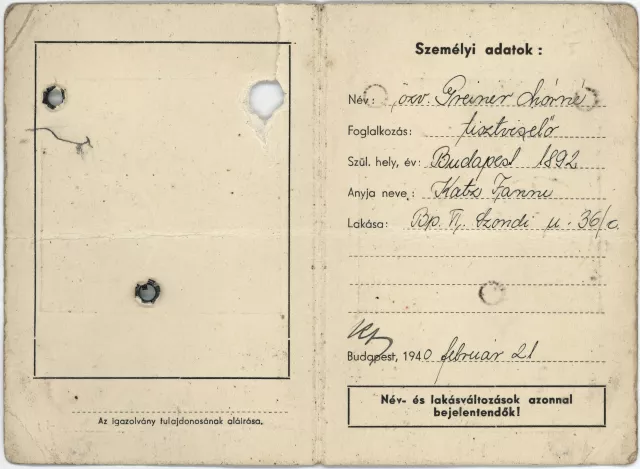 Az igazolvány tulajdonosának aláírása.
Személyi adatok :
Név : özv. Greiner Mórné
Foglalkozás: tisztviselő
Szül. hely, év: Budapest 1892
Anyja neve : Katz Fanni
Lakása: Bp. VI, Szondi u. 36/c.
Budapest, 1940 február 21
Név- és lakásváltozások azonnal
bejelentendők!